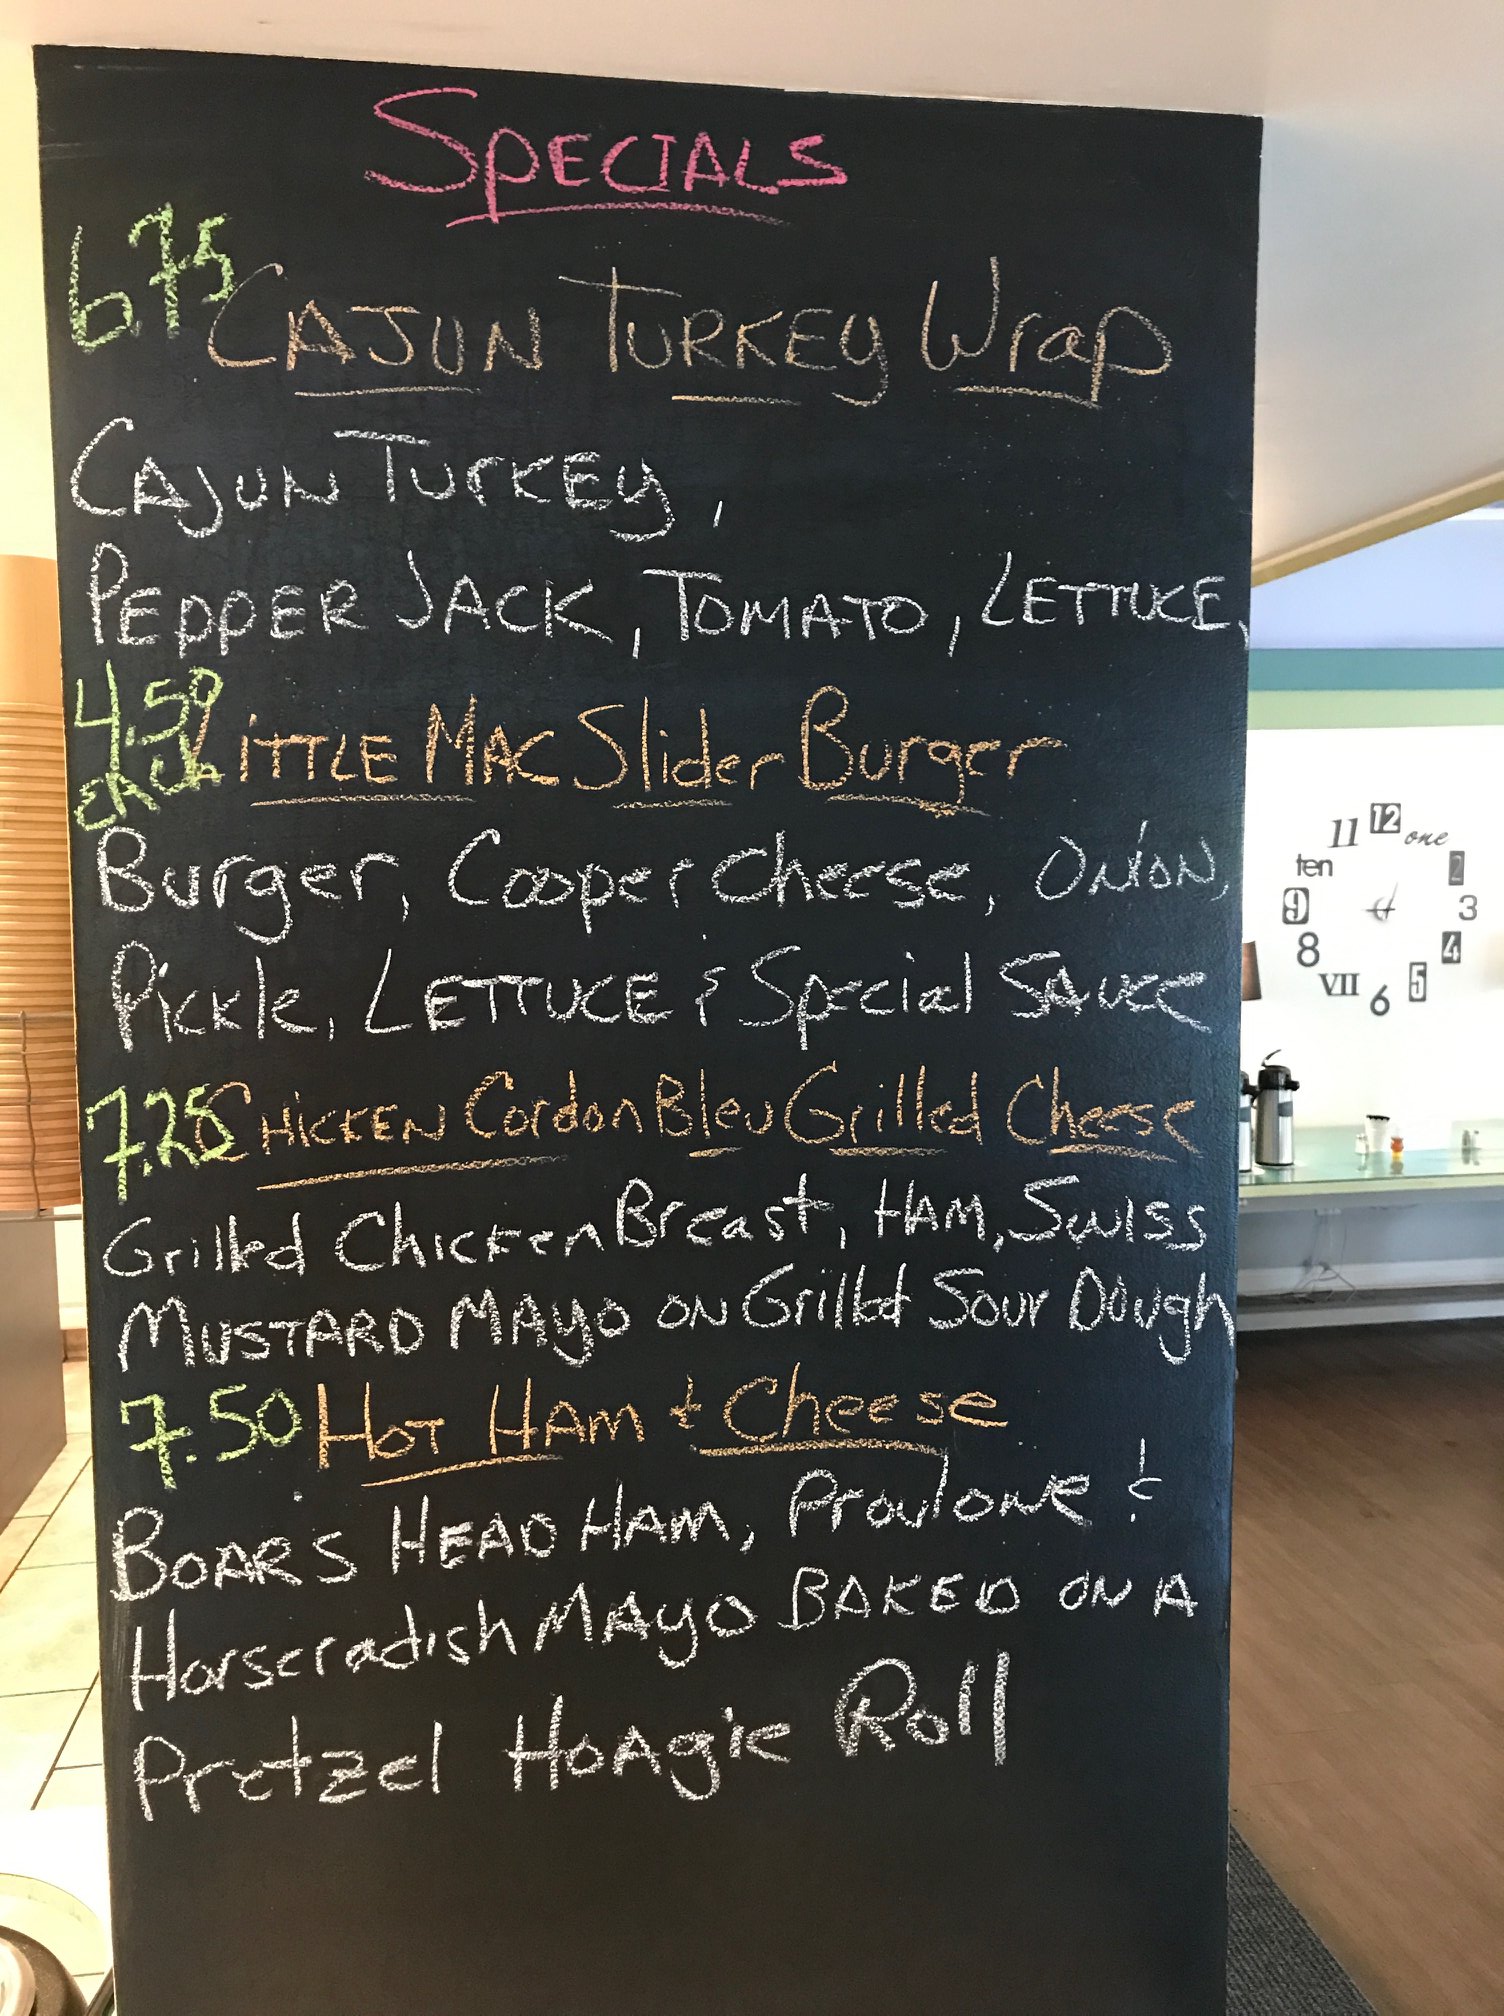 SPECIALS
6.75
CAJUN TURKEY Wrap
CAJUN TURKEY,
PEPPER JACK, TOMATO, LETTUCE,
4.50
each
LITTLE MAC Slider Burger
Burger, Cooper cheese, ONION,
Pickle, LETTUCE & Special SAUCE
7.25 CHICKEN Cordon Bleu Grilled Cheese
Grilled Chicken Breast, HAM, Swiss
MUSTARD MAYO ON Grilled Sour Dough
7.50 HOT HAM & Cheese
BOAR'S HEAD HAM, Provlone &
Horseradish MAYO BAKED ON A
Pretzel HOAgie Roll
11 12 one
ten 2
9 3
8 4
VII 6 5